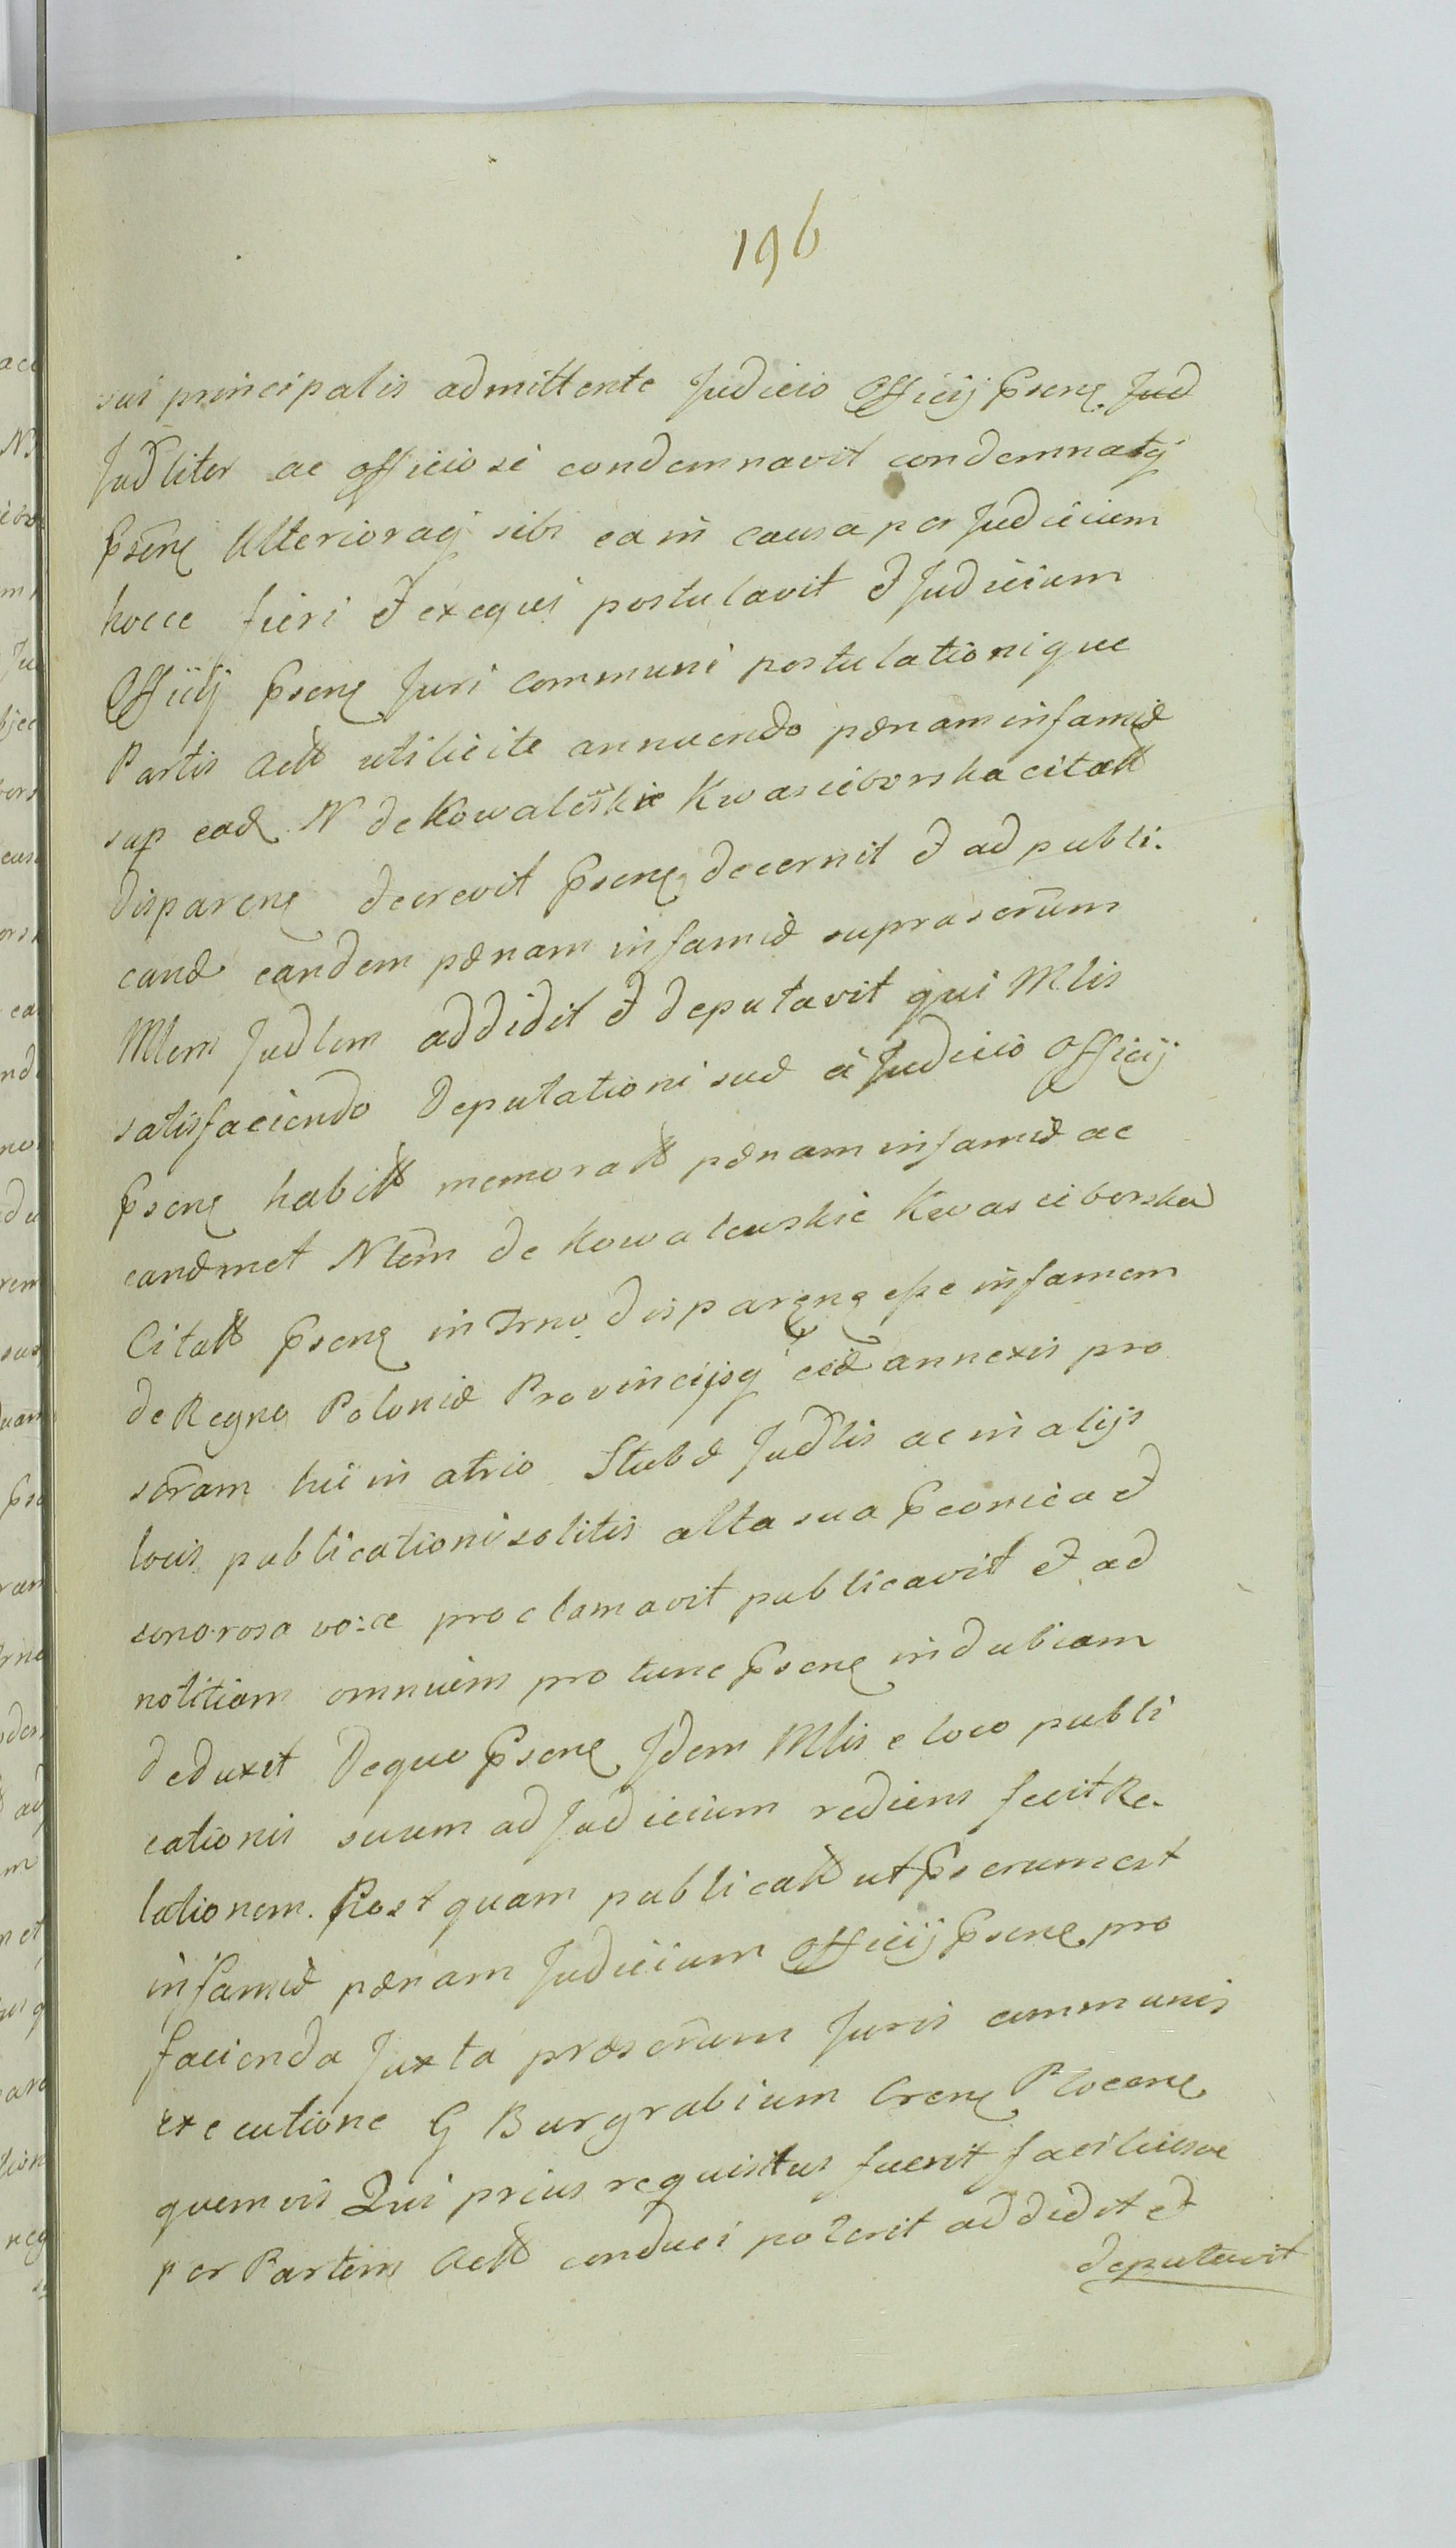 196
sui principalis admittente Judicio Officij Psenꝭ Jud
Judliter ac officiose condemnavit condemnatqꝫ
Psenꝭ Ulterioraqꝫ sibi ea in causa per Judicium
hocce fieri et exequi postulavit et Judicium
Officij Psenꝭ Juri communi postulationique
Partis Actt uti licite annuendo pænam infamiæ
sup eadꝭ N de Kowalewskie Kwasieborska citatt
disparenꝭ decrevit Psenꝭ decernit et ad publi-
cand eandem pænam infamiæ suprascrum
Mlem Judlem addidit et deputavit qui Mlis
satisfaciendo Deputationi suæ à Judicio Officij
Psenꝭ habitt memoratt pænam infamiæ ac
eandmet Ntem de Kowalewskie Kwasieborska
Citatt Psenꝭ in Trno disparenꝭ esse infamem
de Regno Poloniæ Provincijsqꝫ eid annexis pro
scram hic in atrio Stubæ Judlis ac in alijs
locis publicationi solitis alta sua Pconica et
sonorosa vo:ce proclamavit publicavit et ad
notitiam omnium pro tunc Psenꝭ indubiam
deduxit Dequo Psenꝭ Jdem Mlis e loco publi
cationis suum ad Judicium rediens fecit Re-
lationem. Post quam publicatt ut Pserum est
infamiæ pænam Judicium Officij Psenꝭ pro
facienda Juxta præscrum Juris communis
executione G Burgrabium Crenꝭ Plocenꝭ
quemvis Qui prius requisitus fuerit faciliusve
per Partem Actt conduci poterit addidit et
deputavit